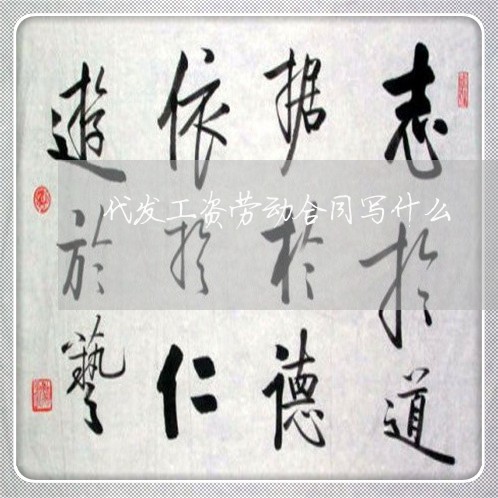 志於道
据於德
依於仁
遊於藝
代发工资劳动合同写什么